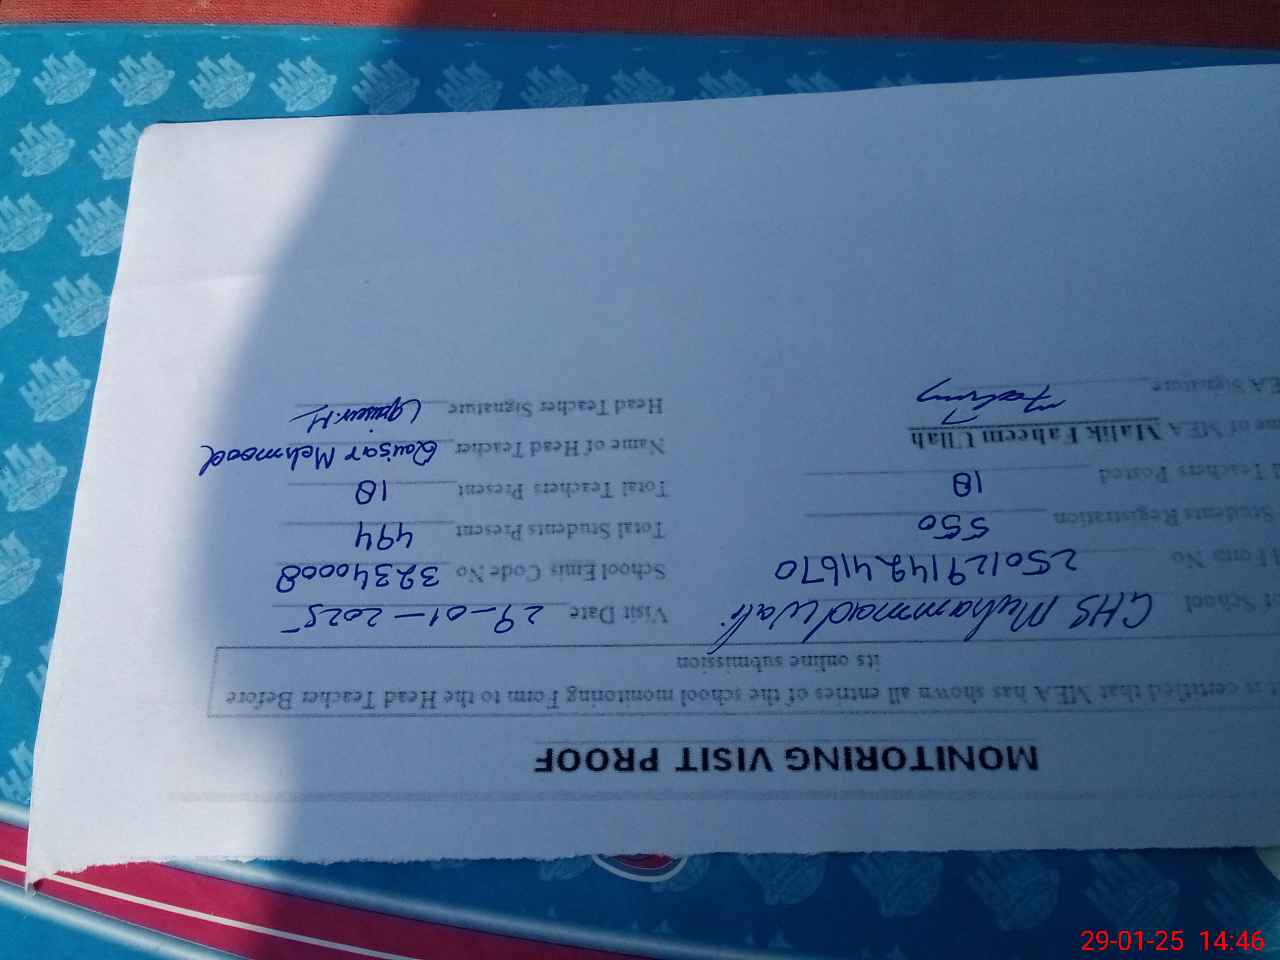 MONITORING VISIT PROOF
certified that MEA has shown all entries of the school monitoring Form to the Head Teacher Before
its online submission
School GHS Muhammad Wali Visit Date 29-01-2025
Form No 25012914241670 School Emis Code No 32340008
Students Registration 550 Total Students Present 494
Teachers Posted 18 Total Teachers Present 18
of MEA Malik Faheem Ullah Name of Head Teacher Qaisar Mehmood
Signature Head Teacher Signature Qaiser.M
29-01-25 14:46